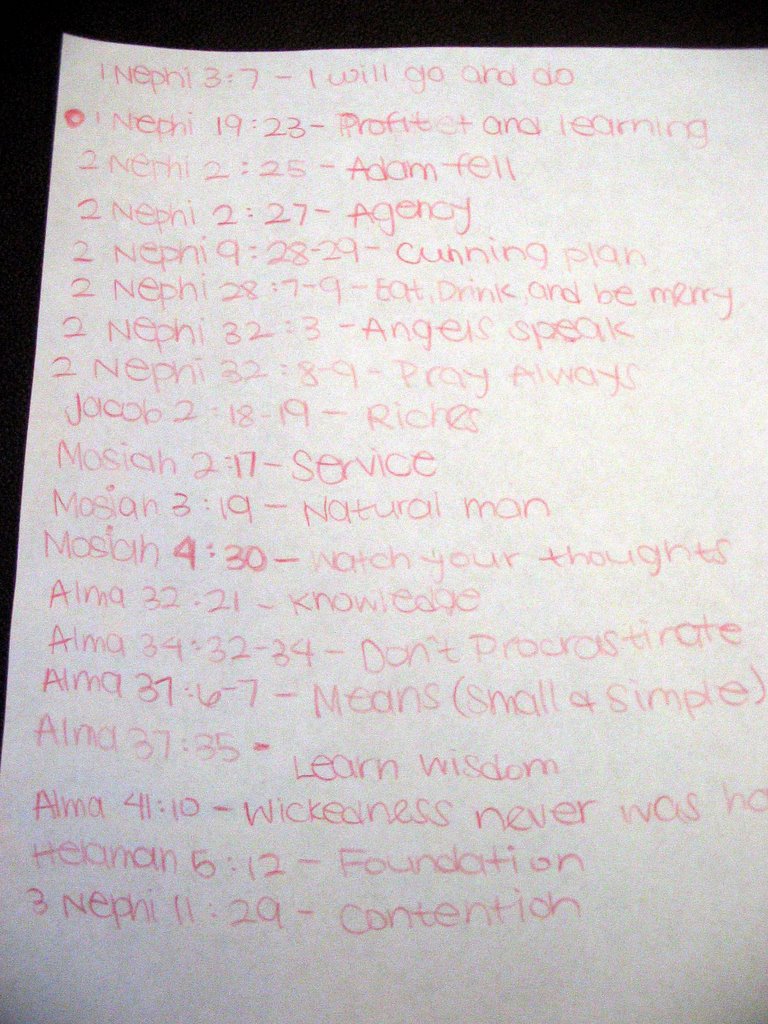 1 Nephi 3:7 - I will go and do
1 Nephi 19:23 - and learning
2 Nephi 2:25 - Adam fell
2 Nephi 2:27 - Agency
2 Nephi 9:28-29 - cunning plan
2 Nephi 28:7-9 - Eat, Drink, and be merry
2 Nephi 32:3 - Angels speak
2 Nephi 32:8-9 - Pray Always
Jacob 2:18-19 - Riches
Mosiah 2:17 - Service
Mosiah 3:19 - Natural man
Mosiah 4:30 - Watch your thoughts
Alma 32:21 - Knowledge
Alma 34:32-34 - Don't Procrastinate
Alma 37:6-7 - Means (Small & Simple)
Alma 37:35 - Learn wisdom
Alma 41:10 - Wickedness never was ha
Helaman 5:12 - Foundation
3 Nephi 11:29 - Contention